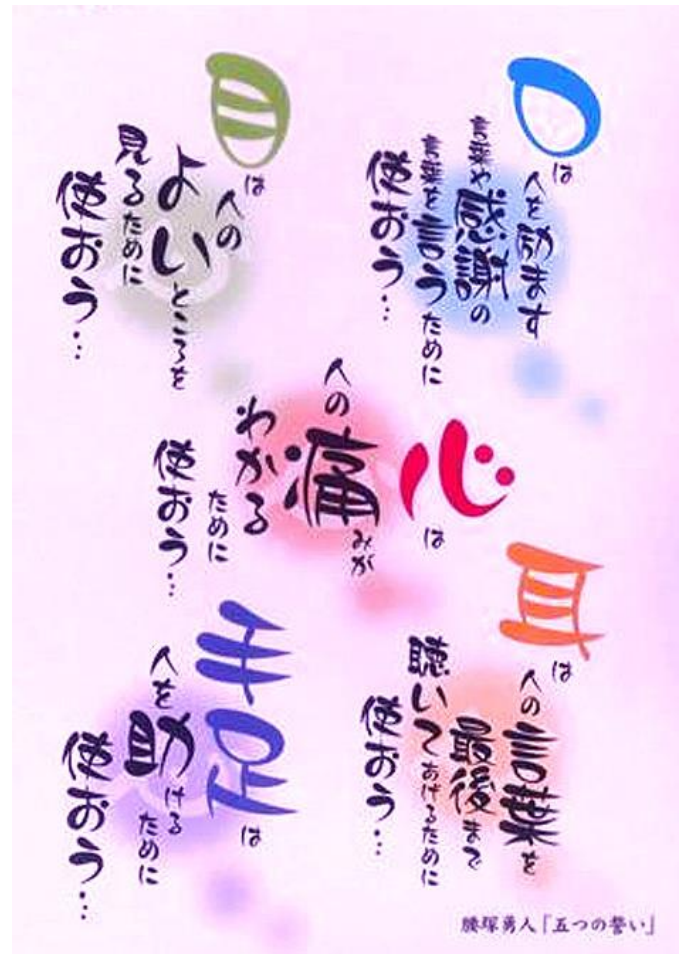 口は
人を励ます
言葉や感謝の
言葉を言うために
使おう…
目は
人の
よいところを
見るために
使おう…
心は
人の痛みが
わかる
ために
使おう…
耳は
人の言葉を
最後まで
聴いてあげるために
使おう…
手足は
人を助ける
ために
使おう…
腰塚勇人「五つの誓い」